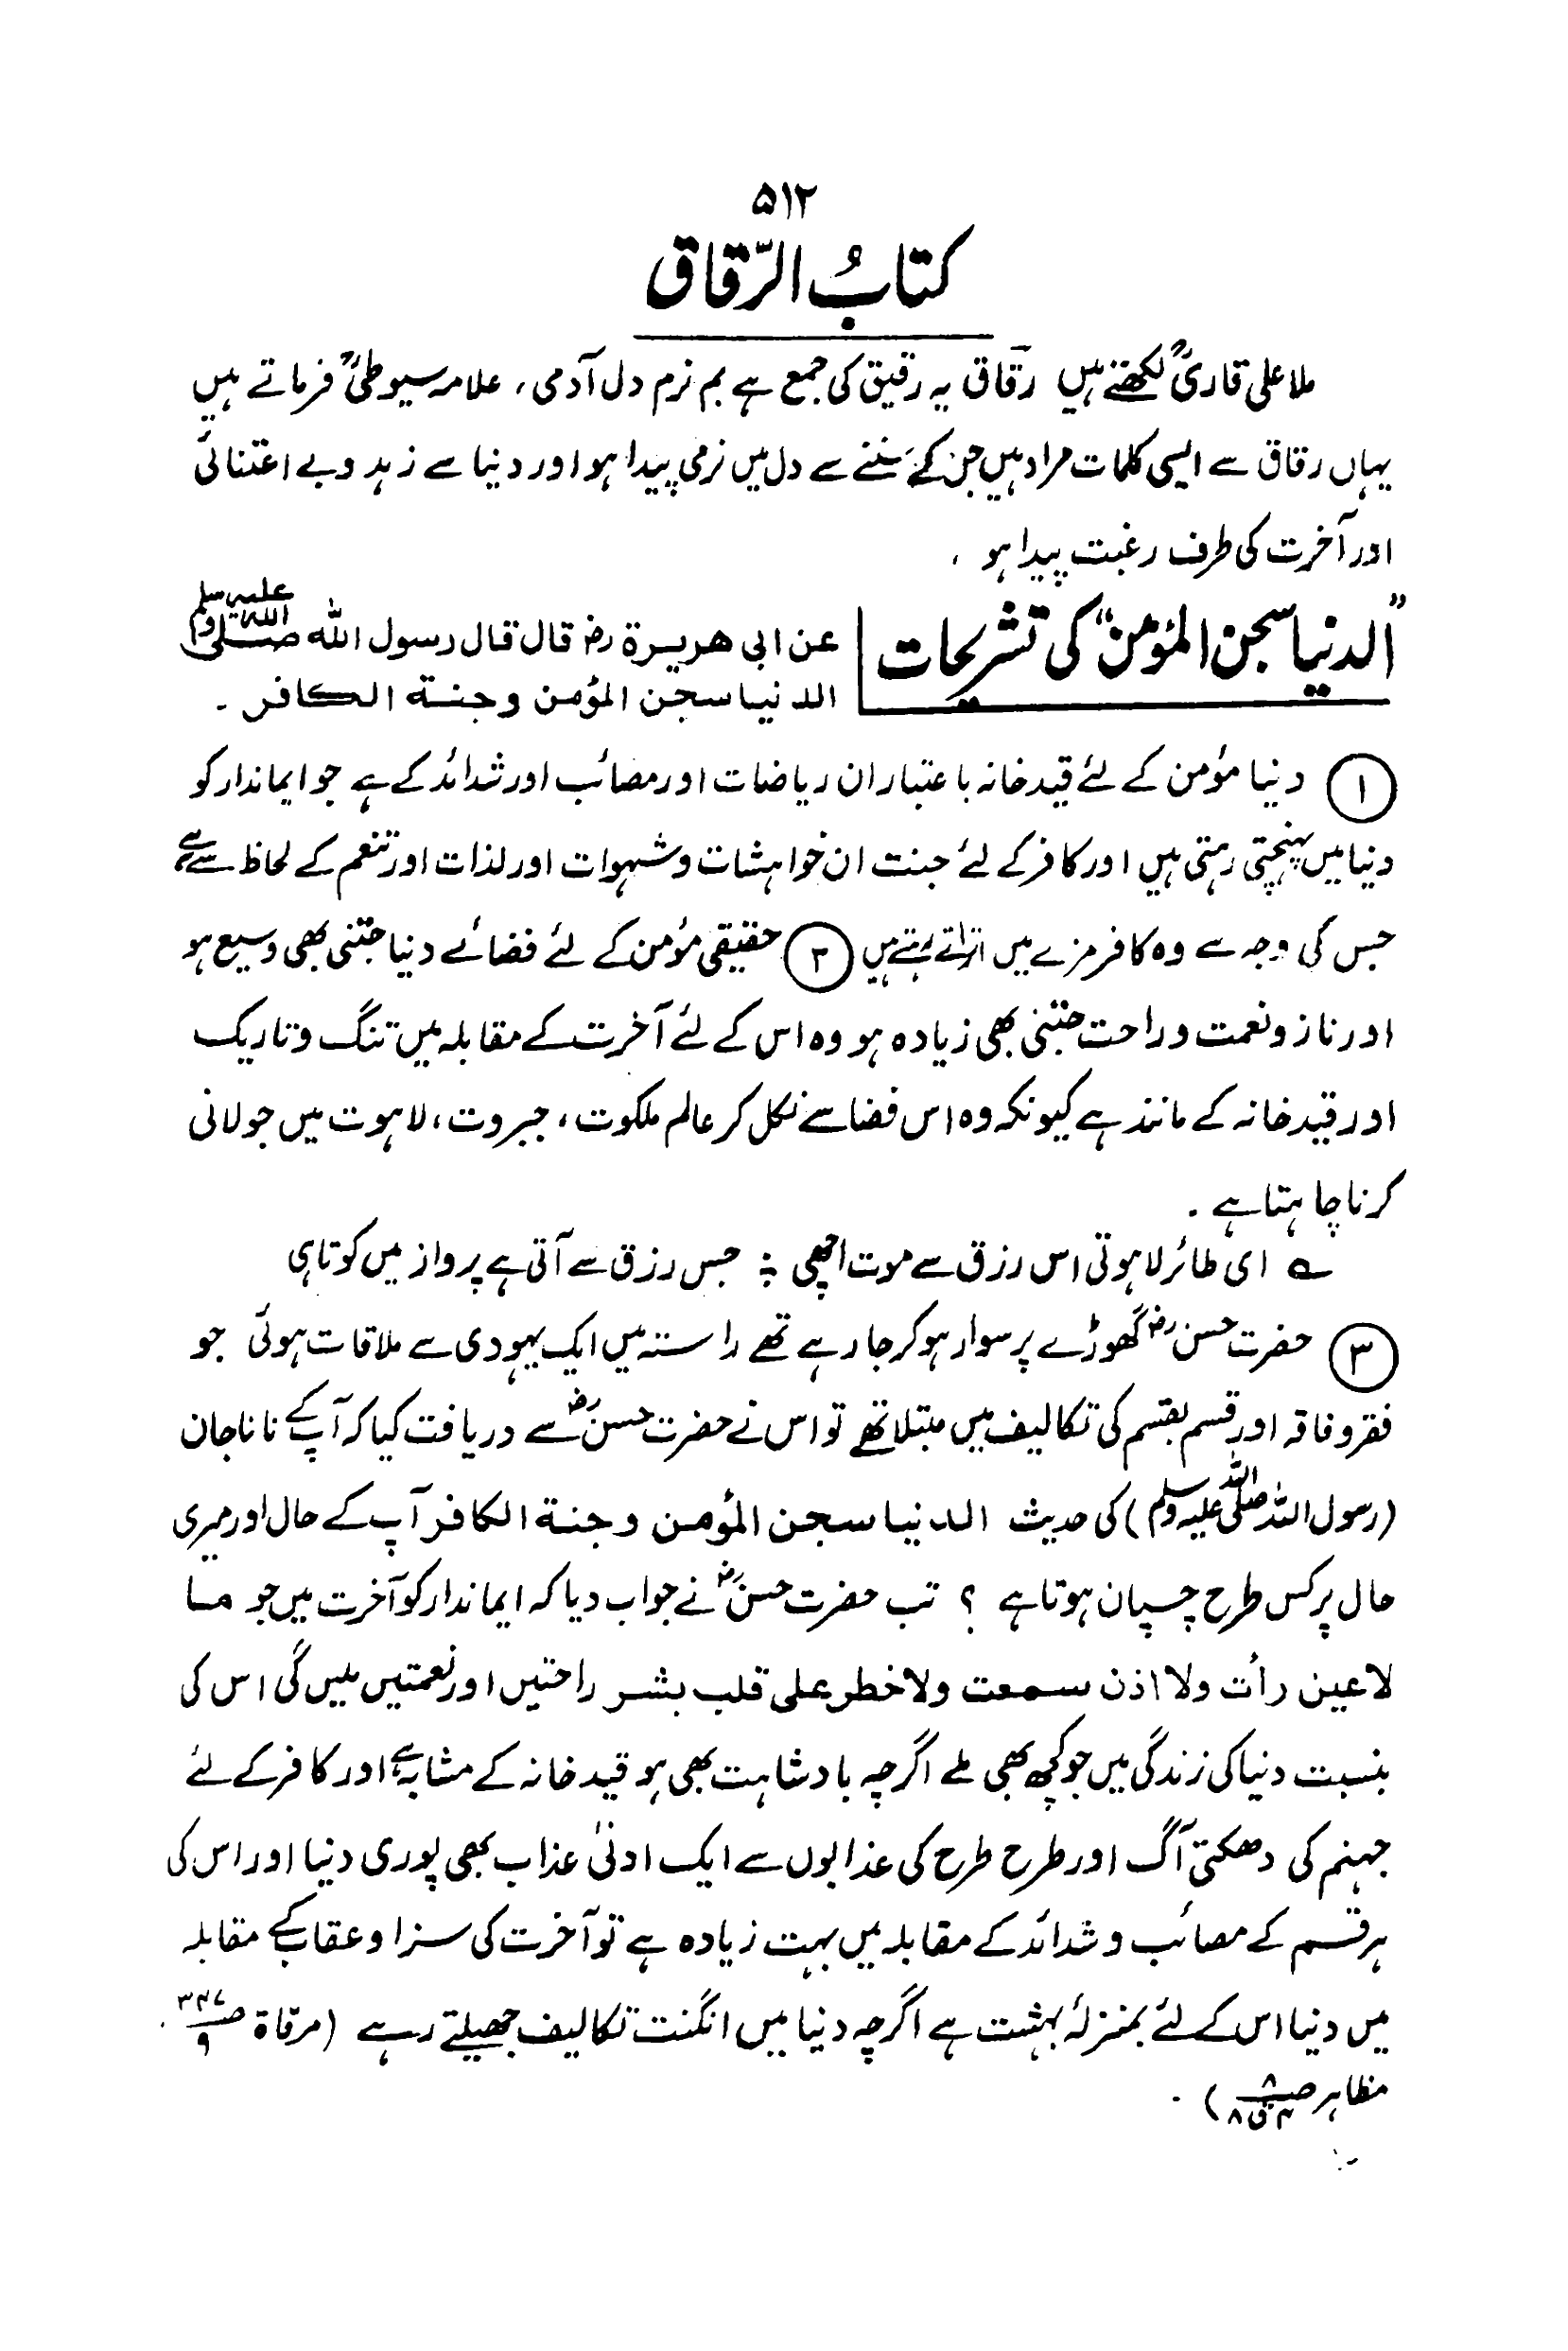 ۵۱۲
کتابُ الرّقاق
ملا علی قاریؒ لکھتے ہیں رقاق یہ رقیق کی جمع ہے بم نرم دل آدمی، علامہ سیوطیؒ فرماتے ہیں
یہاں رقاق سے ایسی کلمات مراد ہیں جن کے سننے سے دل میں نرمی پیدا ہو اور دنیا سے زہد و بے اعتنائی
اور آخرت کی طرف رغبت پیدا ہو ،
”الدنیا سجن المؤمن“ کی تشریحات
عن ابی هریرة رض قال قال رسول الله صلی الله علیه وسلم
الدنیا سجن المؤمن وجنة الکافر ۔
① دنیا مؤمن کے لئے قید خانہ باعتبار ان ریاضات اور مصائب اور شدائد کے ہے جو ایماندار کو
دنیا میں پہنچتی رہتی ہیں اور کافر کے لئے جنت ان خواہشات و شہوات اور لذات اور تنعم کے لحاظ سے ہے
جس کی وجہ سے وہ کافر مزے میں اتراتے رہتے ہیں ② حقیقی مؤمن کے لئے فضائے دنیا جتنی بھی وسیع ہو
اور ناز و نعمت و راحت جتنی بھی زیادہ ہو وہ اس کے لئے آخرت کے مقابلہ میں تنگ و تاریک
اور قید خانہ کے مانند ہے کیونکہ وہ اس فضا سے نکل کر عالم ملکوت، جبروت، لاہوت میں جولانی
کرنا چاہتا ہے ۔
؎ ای طائر لاہوتی اس رزق سے موت اچھی ؛ جس رزق سے آتی ہے پرواز میں کوتاہی
③ حضرت حسن رض گھوڑے پر سوار ہو کر جا رہے تھے راستہ میں ایک یہودی سے ملاقات ہوئی جو
فقر و فاقہ اور قسم بقسم کی تکالیف میں مبتلا تھے تو اس نے حضرت حسن رض سے دریافت کیا کہ آپ کے نانا جان
(رسول اللہ صلی اللہ علیہ وسلم) کی حدیث الدنیا سجن المؤمن وجنة الکافر آپ کے حال اور میری
حال پر کس طرح چسپان ہوتا ہے ؟ تب حضرت حسن رض نے جواب دیا کہ ایماندار کو آخرت میں جو ما
لا عین رأت ولا اذن سمعت ولا خطر علی قلب بشر راحتیں اور نعمتیں ملیں گی اس کی
بنسبت دنیا کی زندگی میں جو کچھ بھی ملے اگرچہ بادشاہت بھی ہو قید خانہ کے مشابہ ہے اور کافر کے لئے
جہنم کی دھکتی آگ اور طرح طرح کی عذابوں سے ایک ادنیٰ عذاب بھی پوری دنیا اور اس کی
ہر قسم کے مصائب و شدائد کے مقابلہ میں بہت زیادہ ہے تو آخرت کی سزا و عقاب کے مقابلہ
میں دنیا اس کے لئے بمنزلہٴ بہشت ہے اگرچہ دنیا میں انگنت تکالیف جھیلتے رہے (مرقاة ص ۹
مظاہر ص ۸) ۔